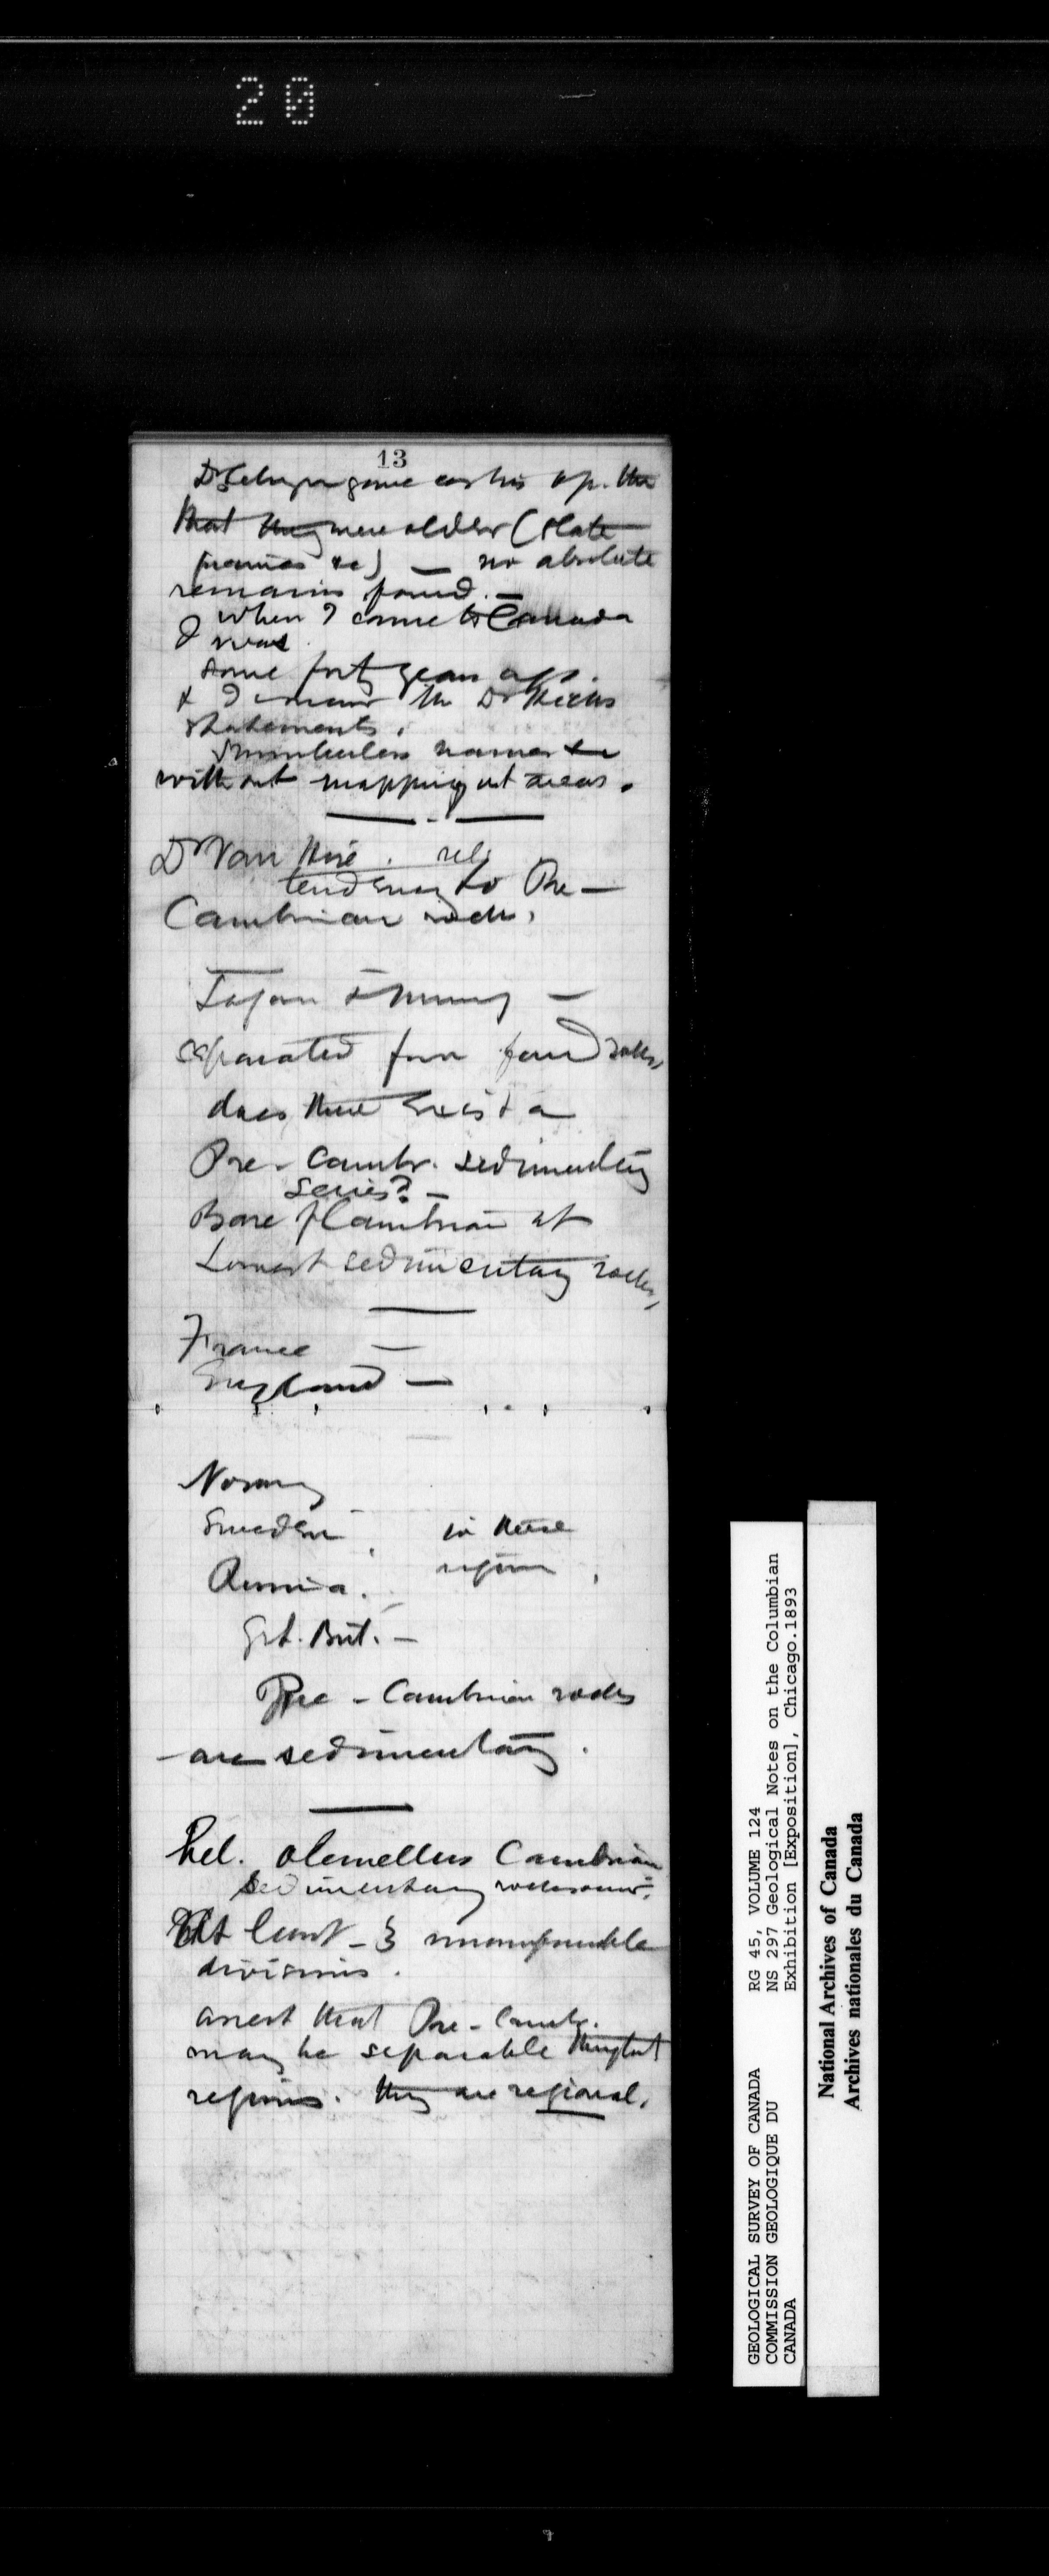 20
13
Dr Selwyn gave as his op. the
that they were older (slate
&c) — no absolute
remains found. —
when I came to Canada
I was
some forty years ago.
& I the Dr Hicks
statements.
names
without mapping out areas.
Dr Van Hise. rel.
tendency to Pre-
Cambrian rocks.
Japan —
separated from found rocks,
does there exist a
Pre-Cambr. sedimentary
series? —
Base of Cambrian at
Lowest sedimentary rocks,
France —
England —
Norway
Sweden in these
Russia. region,
Grt. Brit. —
Pre-Cambrian rocks
are sedimentary.
Rel. olenellus Cambrian
sedimentary rocks
At least - 3
divisions.
assert that Pre-Camb.
may be separable throughout
regions. they are regional.
GEOLOGICAL SURVEY OF CANADA RG 45, VOLUME 124
COMMISSION GEOLOGIQUE DU NS 297 Geological Notes on the Columbian
CANADA Exhibition [Exposition], Chicago.1893
National Archives of Canada
Archives nationales du Canada